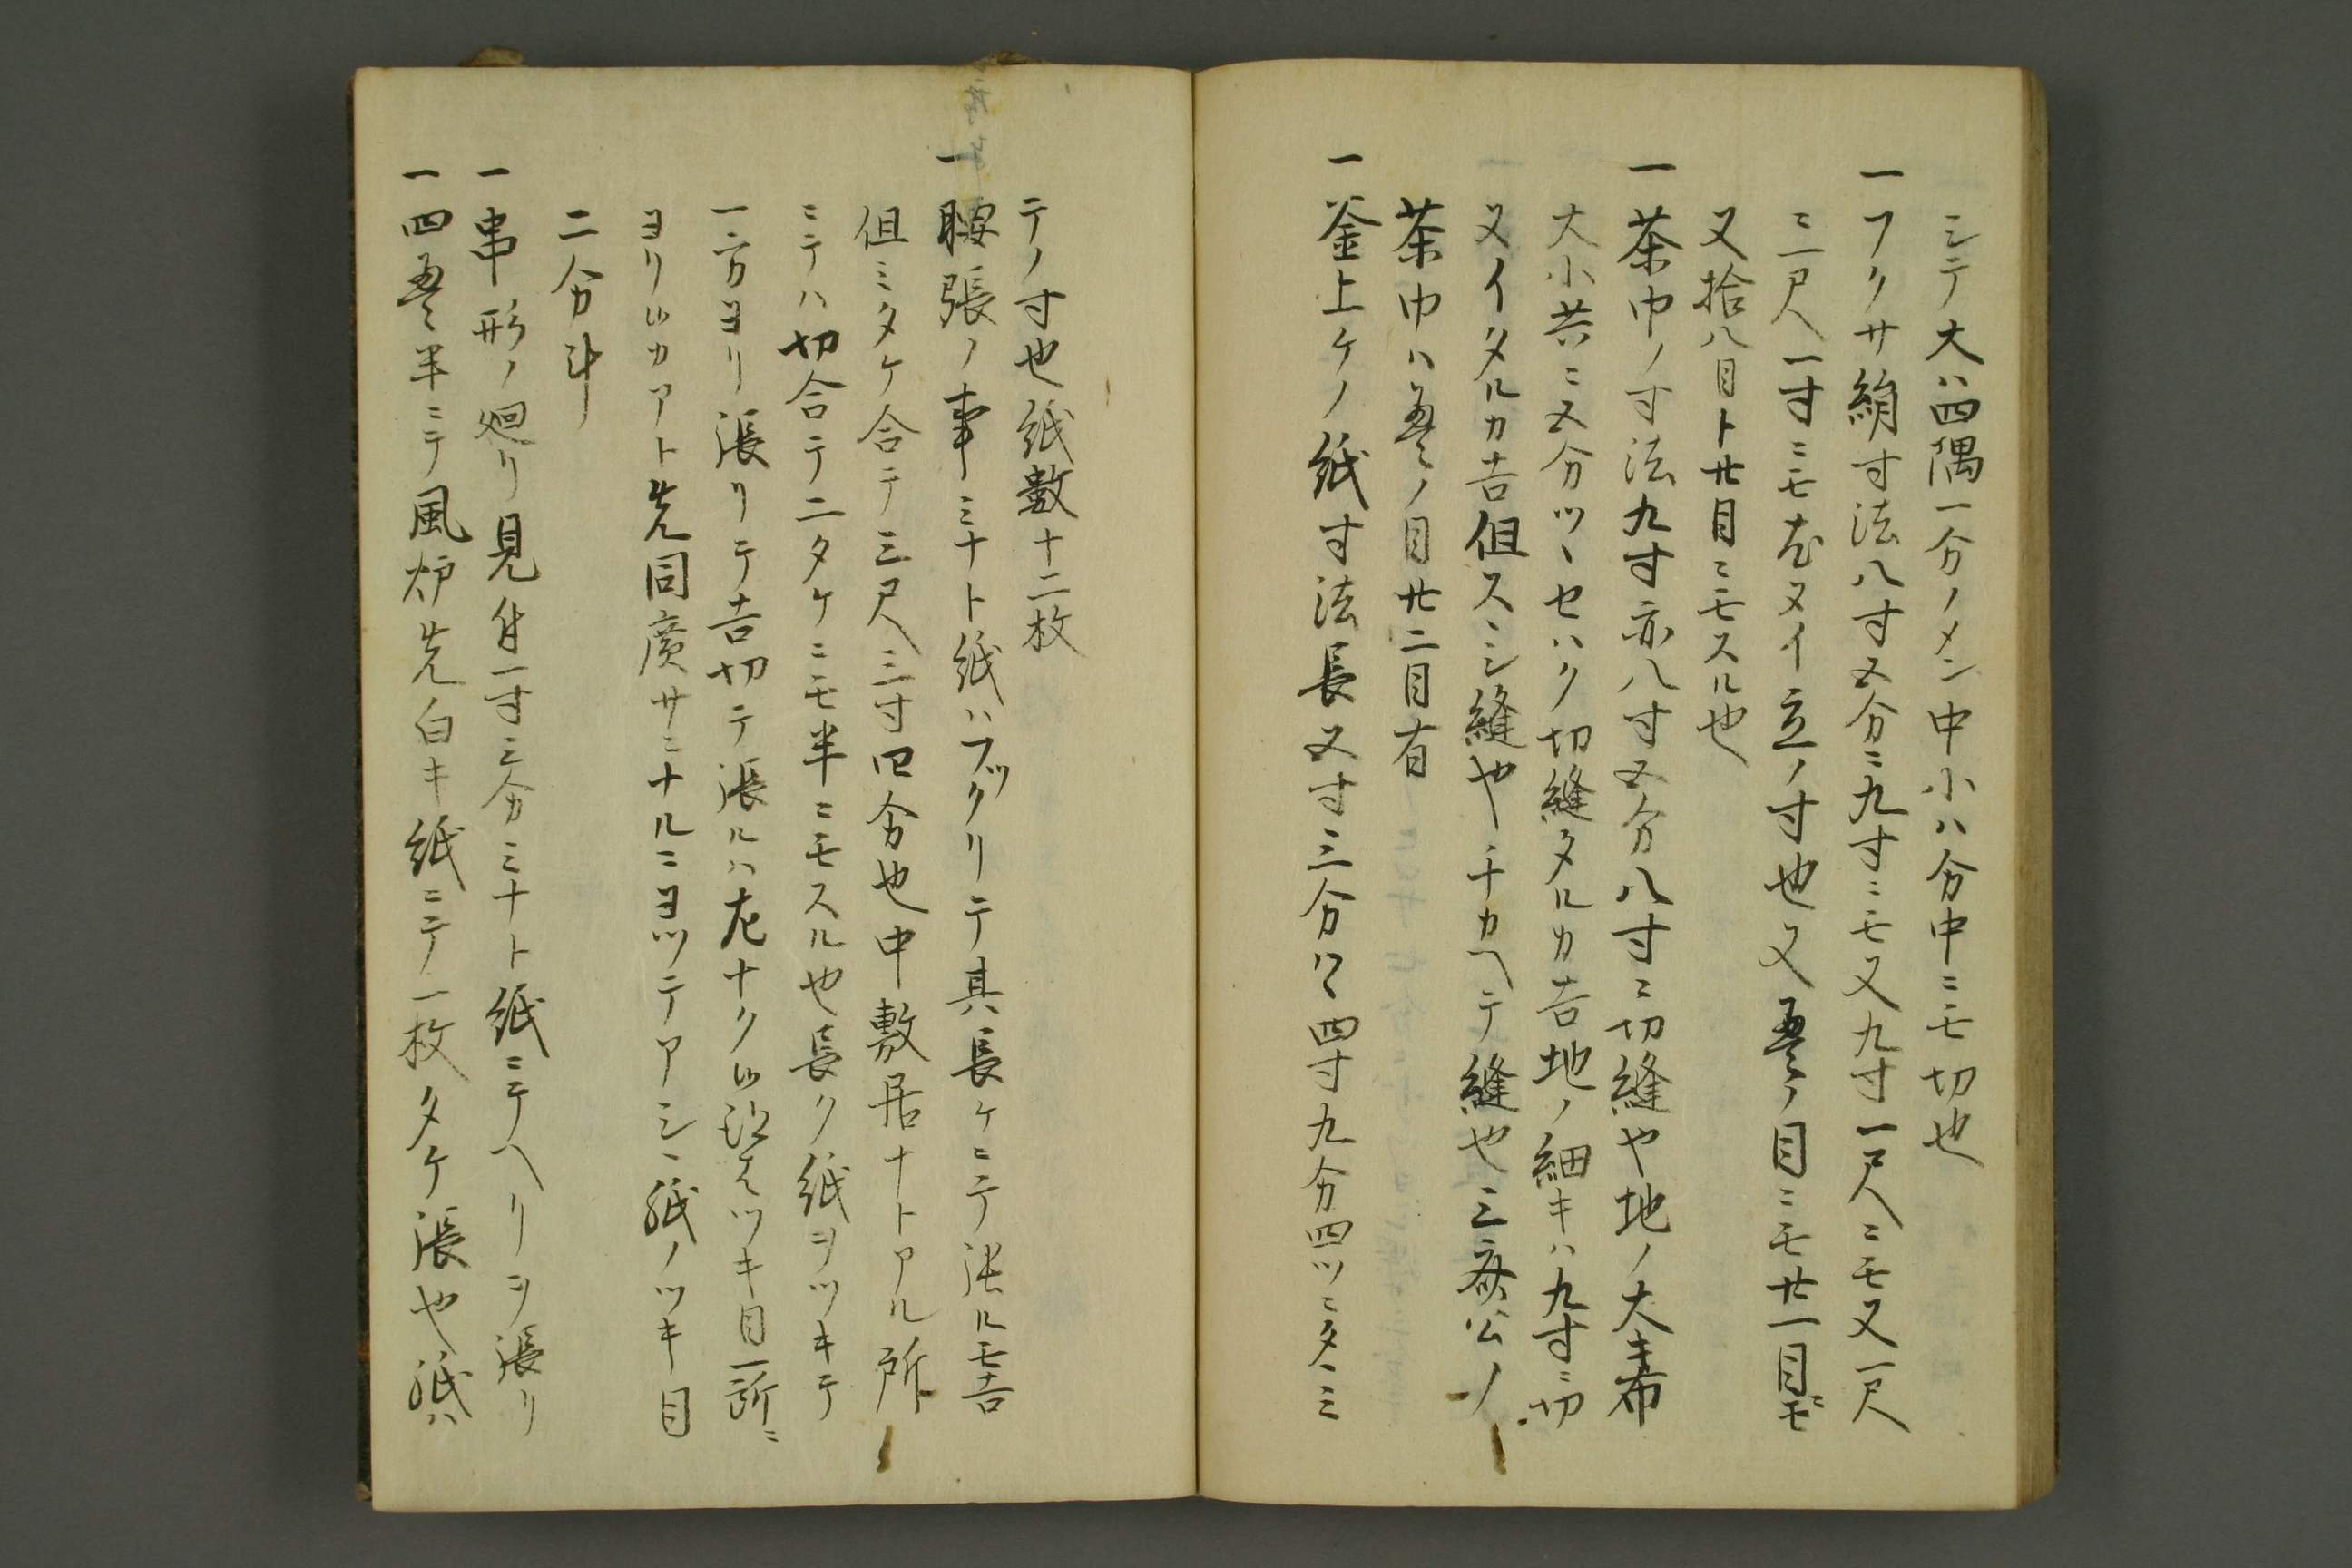 シテ大ハ四隅一分ノメン中小ハ分中ニモ切也
一フクサ絹寸法八寸五分ニ九寸ニモ又九寸一尺ニモ又一尺
ニ一尺一寸ニモ尤ヌイ立ノ寸也又畳ノ目ニモ廿一目ニモ
又拾八目ト廿目ニモスル也
一茶巾ノ寸法九寸亦八寸五分八寸ニ切縫也地ノ大キ布
大小共ニ五分ツヽセハク切縫タルカ吉地ノ細キハ九寸ニ切
ヌイタルカ吉但スミ縫ヤチカヘテ縫也三斎公ノ
茶巾ハ畳ノ目廿二目有
一釜上ケノ紙寸法長五寸三分ハヽ四寸九分四ツニタヽミ
テノ寸也紙数十二枚
一腰張ノ事ミナト紙ハフツクリテ其長ケニテ張ルモ吉
但ミタケ合テ三尺三寸四分也中敷居ナトアル所
ニテハ切合テ二タケニモ半ニモスル也長ク紙ヲツキテ
一方ヨリ張リテ吉切テ張ルハ尤ナクツキ目一所ニ
ヨリカアト先同廣サニナルニヨツテアシヽ紙ノツキ目
二分斗
一串形ノ廻リ見付一寸三分ミナト紙ニテヘリヲ張リ
一四畳半ニテ風炉先白キ紙ニテ一枚タケ張也紙ハ